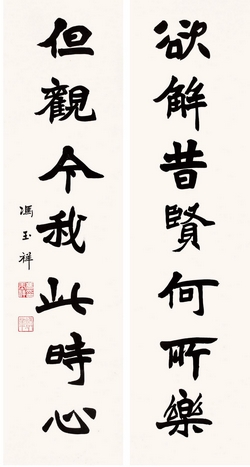 欲解昔賢何所樂
但觀今我此時心
馮玉祥